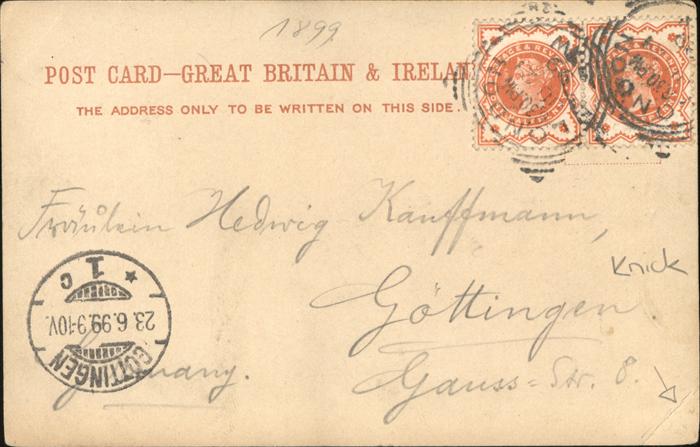 1899
POST CARD—GREAT BRITAIN & IRELAN
THE ADDRESS ONLY TO BE WRITTEN ON THIS SIDE.
Fräulein Hedwig Kauffmann,
Knick
Göttingen.
Germany.
Gauss-Str. 8.
* 1 c
23.6.99.9-10V.
GÖTTINGEN